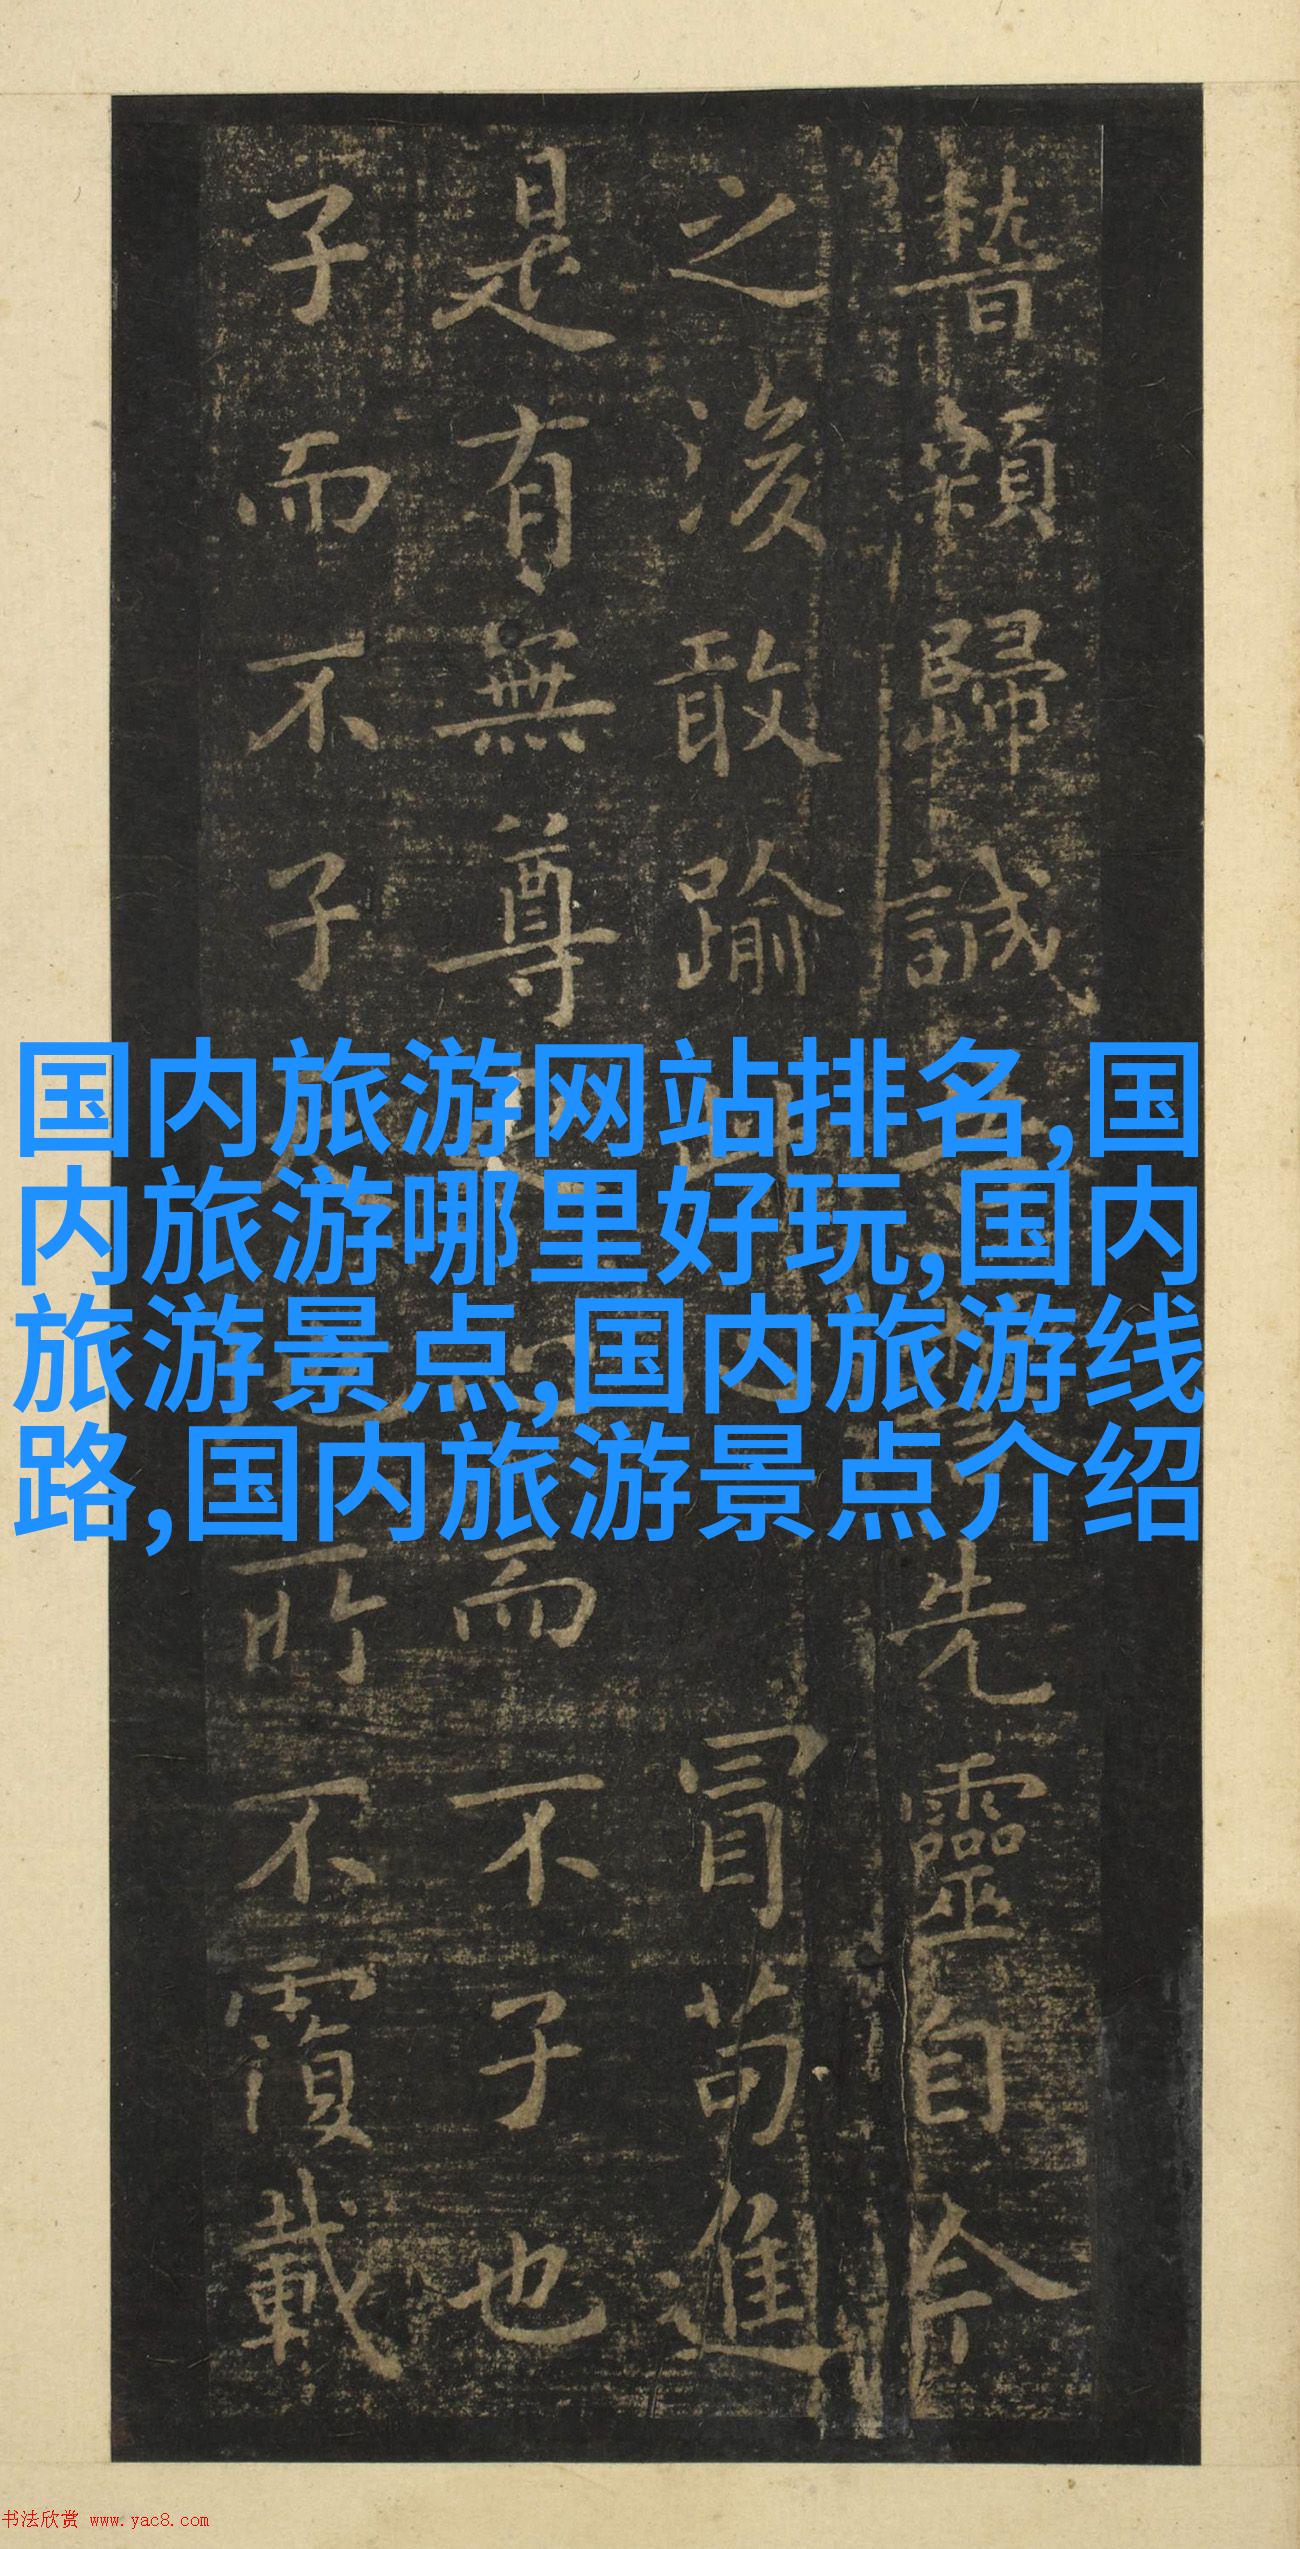 稽顙歸誠
先靈自今
之後敢踰
冒苟進
是有無尊
而不子也
子而不子
所不覆載
国内旅游网站排名,国
内旅游哪里好玩,国内
旅游景点,国内旅游线
路,国内旅游景点介绍
书法欣赏 www.yac8.com